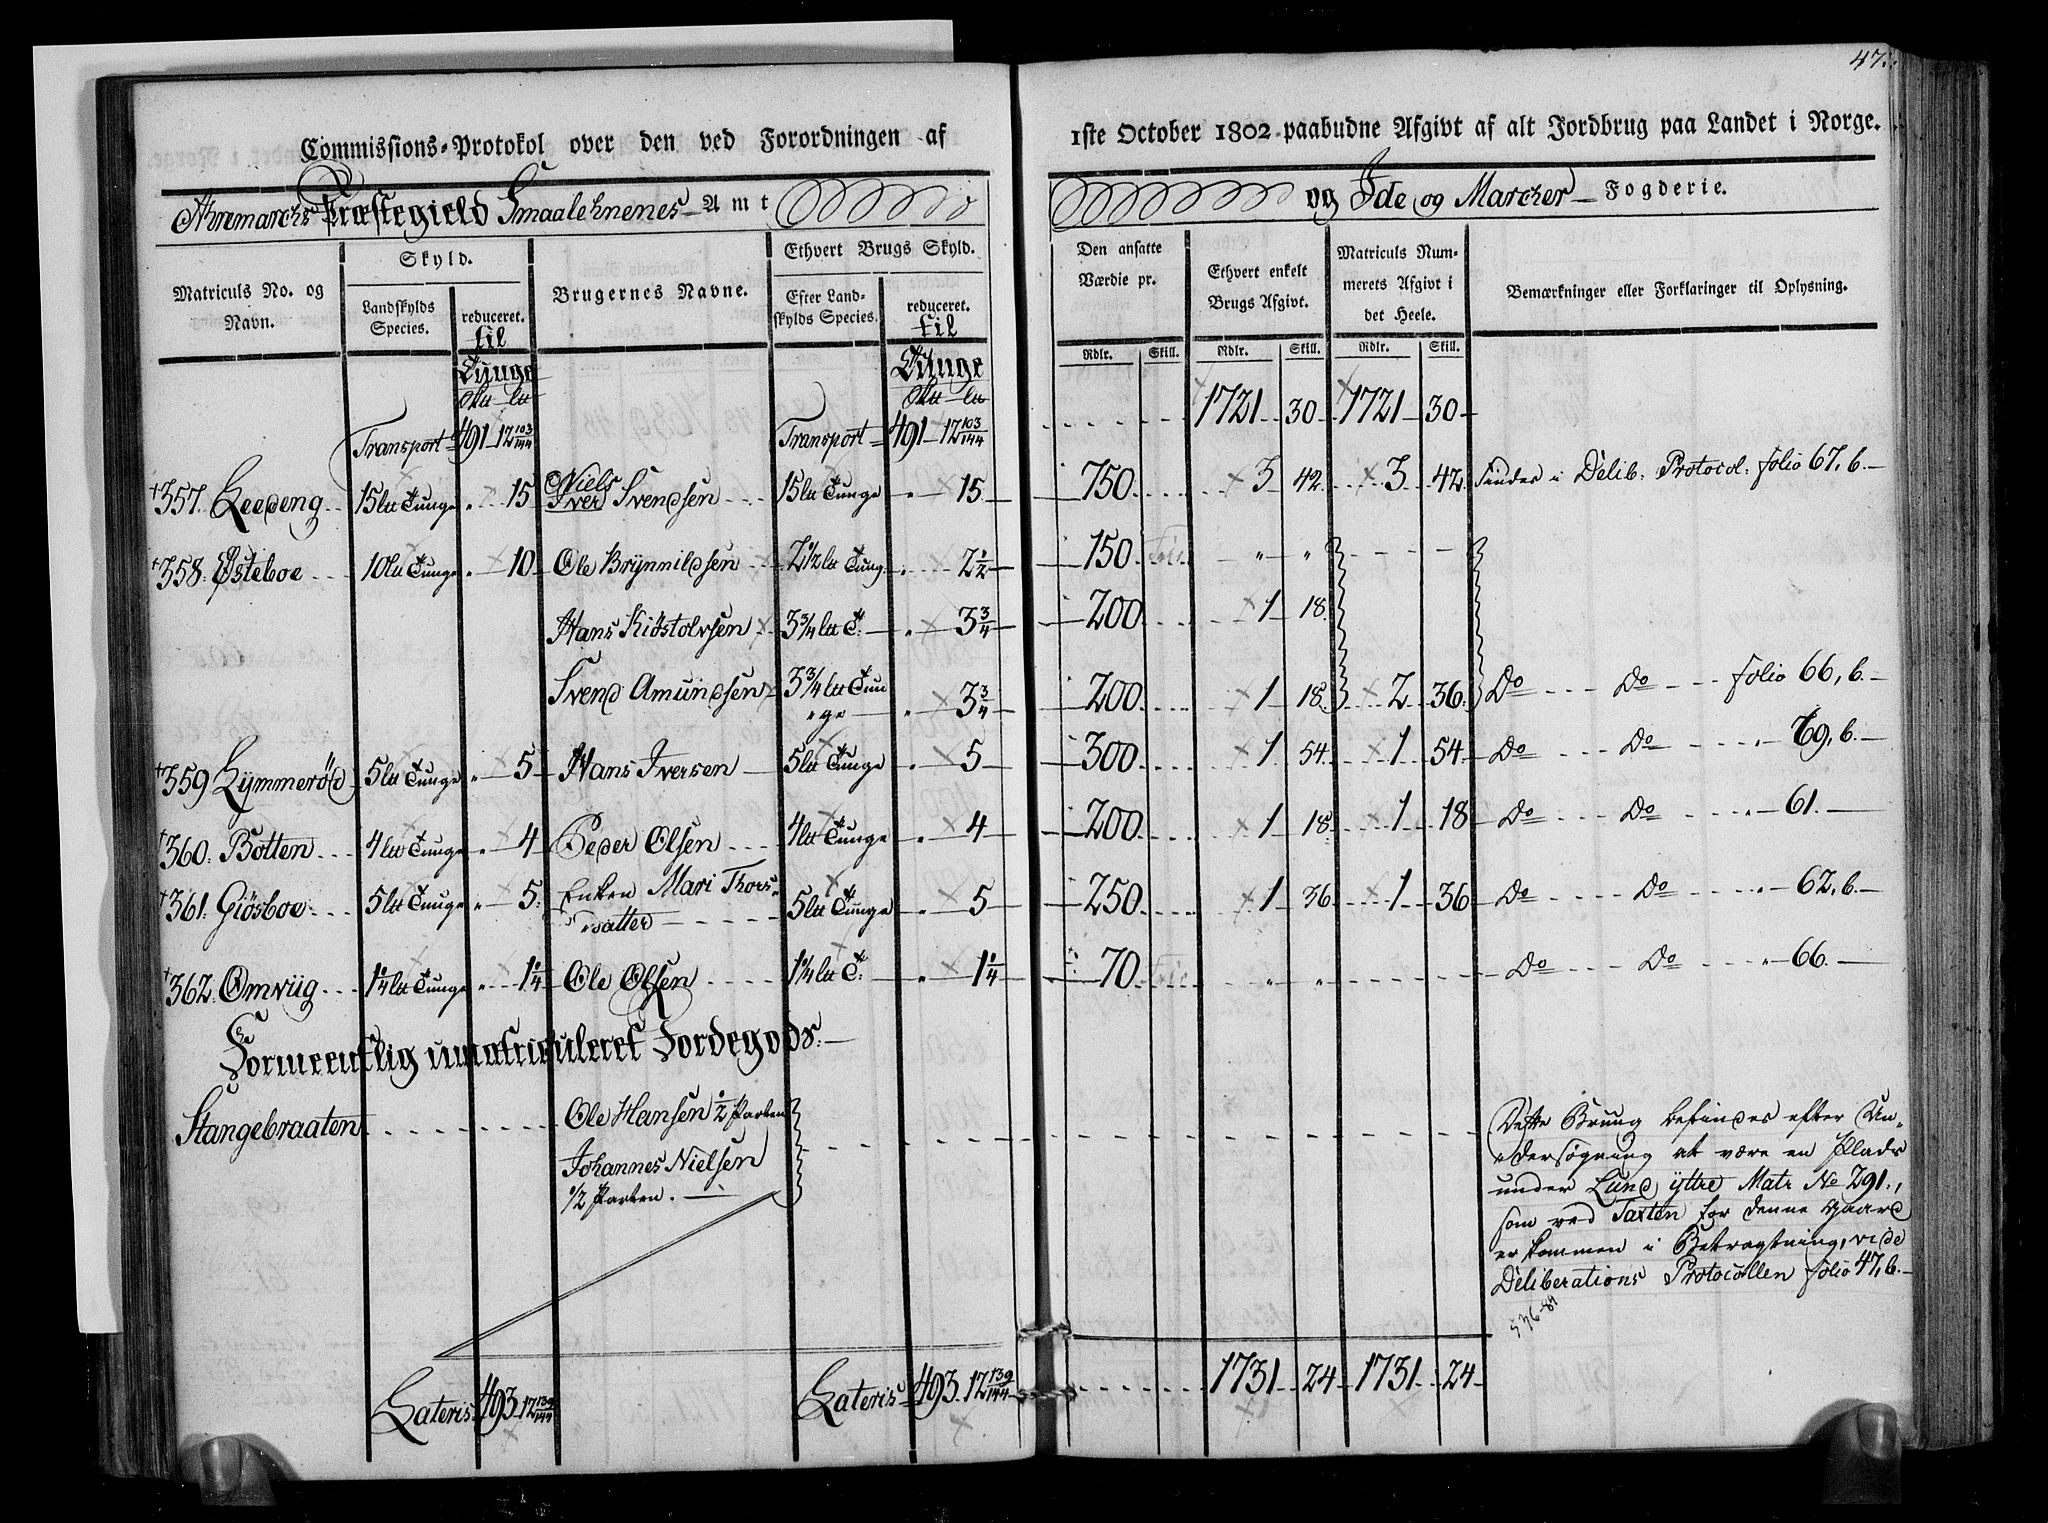 47.
Commissions-Protokol over den ved Forordningen af 1ste October 1802 paabudne Afgivt af alt Jordbrug paa Landet i Norge.
Aremarchs Præstegield Smaalehnenes Amt og Ide og Marcher Fogderie.
Matriculs No. og Navn.
Skyld.
Landskylds Species.
reduceret. til Tunge
Brugernes Navne.
Ethvert Brugs Skyld.
Efter Landskylds Species.
reduceret. til Tunge
Den ansatte Værdie pr.
Rdlr. Skill.
Ethvert enkelt Brugs Afgivt.
Rdlr. Skill.
Matriculs Nummerets Afgivt i det Heele.
Rdlr. Skill.
Bemærkninger eller Forklaringer til Oplysning.
Transport 491 - 12 103/144 Transport 491 - 12 103/144 1721 30 1721 30
357. Leedeng 15 lll Tunge " 15 Niels Iver Svendsen 15 lll Tunge " 15 750 3 42 3 42 Findes i Delib: Protocol: folio 67, b.
358. Østeboe 10 lll Tunge " 10 Ole Brynnildsen 2 1/2 lll Tung. " 2 1/2 150 Frie " "
Hans Kidstolvsen 3 3/4 lll T: " 3 3/4 200 1 18
Svend Amundsen 3 3/4 lll Tunge " 3 3/4 200 1 18 2 36 Do Do folio 66, b.
359 Lymmeröd 5 lll Tunge " 5 Hans Iversen 5 lll Tunge " 5 300 1 54 1 54 Do Do " 69, b.
360. Botten 4 lll Tunge " 4 Peder Olsen 4 lll Tunge " 4 200 1 18 1 18 Do Do " 61.
361. Giösboe 5 lll Tunge " 5 Enken Mari Thorsdatter 5 lll Tunge " 5 250 1 36 1 36 Do Do " 62, b.
362. Omviig 1 1/4 lll Tunge " 1 1/4 Ole Olsen 1 1/4 lll T: " 1 1/4 70 Frie " " Do Do " 66.
Formeentlig umatriculeret Jordegods.
Stangebraaten Ole Hansen 1/2 Parten
Johannes Nielsen
1/2 Parten.
Dette Brug befindes efter Un-
dersøgning at være en Plads
under Lund yttre Matr No 291.,
som ved Taxten for denne Gaard
er kommen i Betragtning, vide
Deliberations Protocollen folio 47, b.
Lateris 493 - 12 139/144 Lateris 493 - 12 139/144 1731 24 1731 24